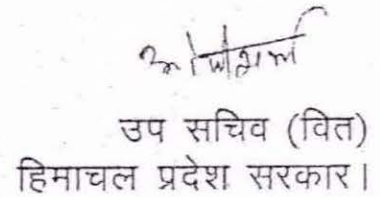 उप सचिव (वित)
हिमाचल प्रदेश सरकार।